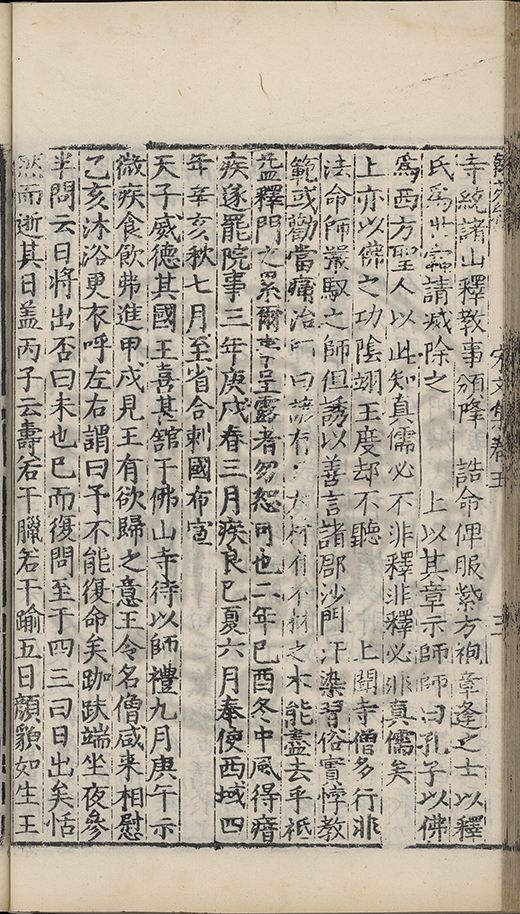 宋文集卷五 三
寺統諸山釋教事頒降 誥命俾服紫方袍章逢之士以釋
氏爲世蠹請滅除之 上以其章示師師曰孔子以佛
爲西方聖人以此知真儒必不非釋非釋必非真儒矣
上亦以佛之功陰翊王度却不聽 上聞寺僧多行非
法命師嚴馭之師但誘以善言諸郡沙門汗染習俗實悖教
範或勸當痛治曰諺有大林有不材之木能盡去乎袛
益釋門之累爾事呈露者勿恕可也二年巳酉冬中風得瘖
疾遂罷院事三年庚戌春三月疾良巳夏六月奉使西域四
年辛亥秋七月至省合剌國布宣
天子威德其國王喜甚舘于佛山寺待以師禮九月庚午示
微疾食飲弗進甲戌見王有欲歸之意王令名僧咸来相慰
乙亥沐浴更衣呼左右謂曰予不能復命矣跏趺端坐夜參
半問云日將出否曰未也巳而復問至于四三曰日出矣恬
然而逝其日盖丙子云壽若干臘若干踰五日顏貌如生王